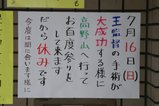 7月16日(日)
王監督の手術が
大成功する様に
高野山へ行って
お百度参りを
して来ます
だから休みです
今度は間に合います様に